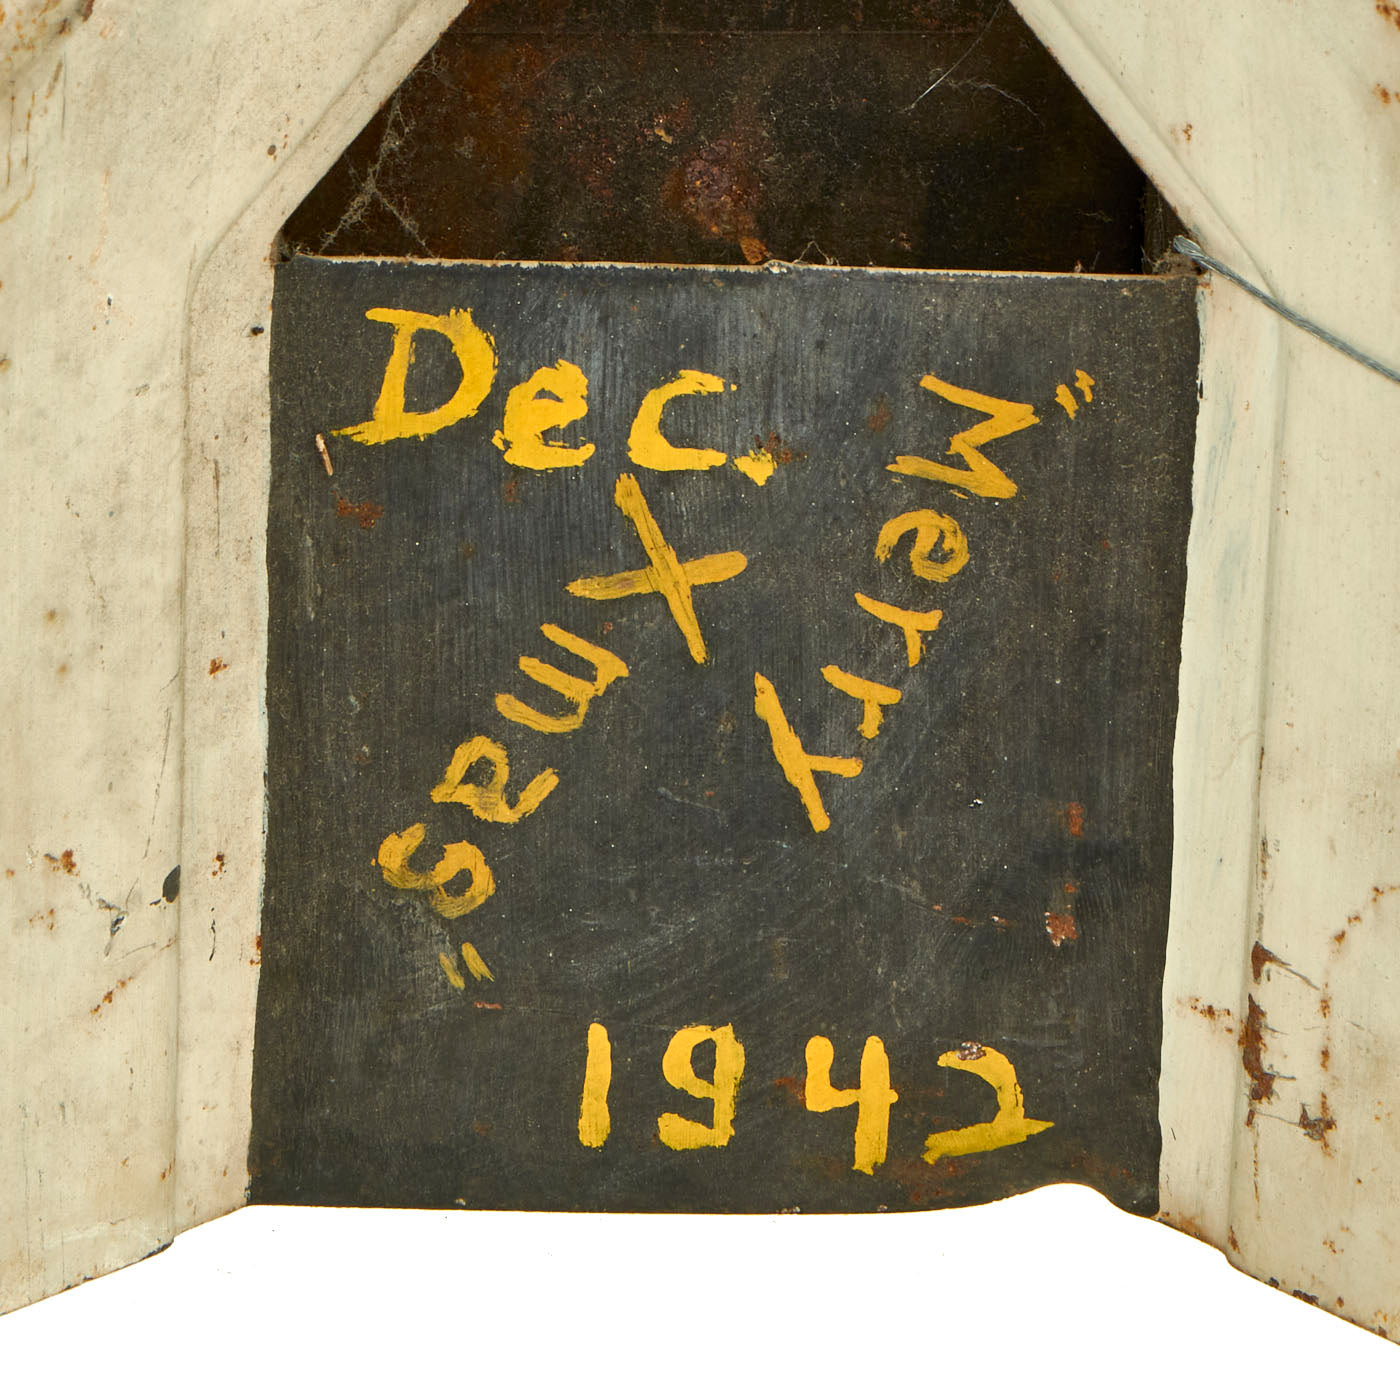 Dec.
"Merry
Xmas"
1942